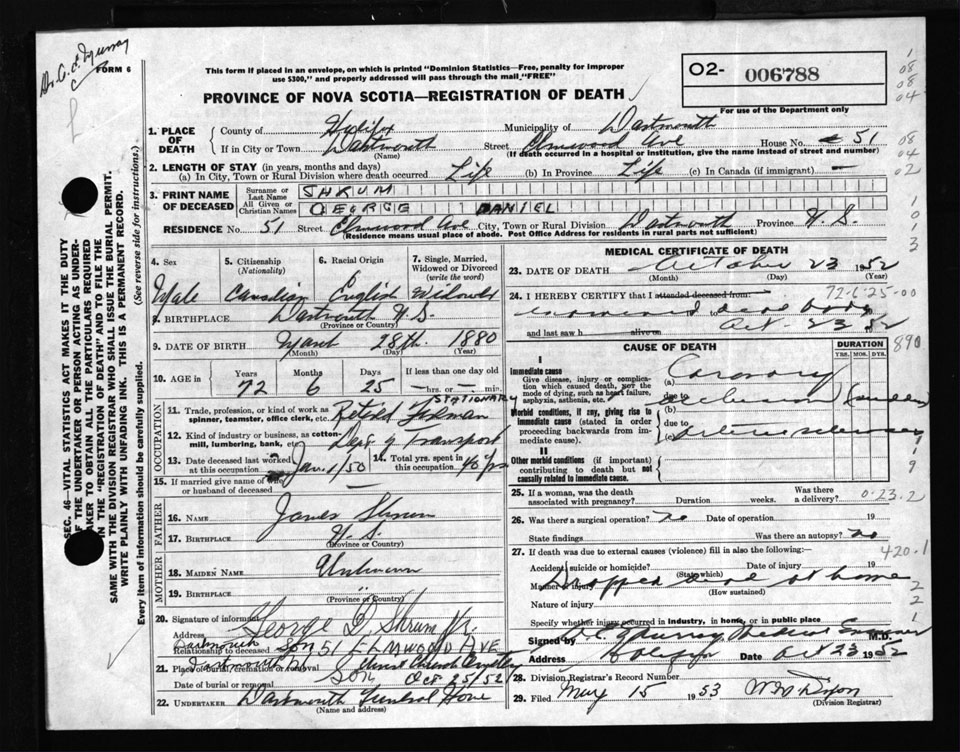 Dr. C. E. Murray
FORM 6
This form if placed in an envelope, on which is printed "Dominion Statistics—Free, penalty for improper
use $300," and properly addressed will pass through the mail "FREE"
PROVINCE OF NOVA SCOTIA—REGISTRATION OF DEATH
O2- 006788
For use of the Department only
1. PLACE OF DEATH
County of Halifax Municipality of Dartmouth
If in City or Town Dartmouth Street Elmwood Ave House No. 51
(Name) (If death occurred in a hospital or institution, give the name instead of street and number)
2. LENGTH OF STAY (in years, months and days)
(a) In City, Town or Rural Division where death occurred Life (b) In Province Life (c) In Canada (if immigrant) —
3. PRINT NAME OF DECEASED
Surname or Last Name SHRUM
All Given or Christian Names GEORGE DANIEL
RESIDENCE No. 51 Street Elmwood Ave City, Town or Rural Division Dartmouth Province N.S.
(Residence means usual place of abode. Post Office Address for residents in rural parts not sufficient)
4. Sex 5. Citizenship (Nationality) 6. Racial Origin 7. Single, Married, Widowed or Divorced (write the word)
Male Canadian English Widower
8. BIRTHPLACE Dartmouth N.S.
(Province or Country)
9. DATE OF BIRTH March 28th. 1880
(Month) (Day) (Year)
10. AGE in Years Months Days If less than one day old
72 6 25 —hrs. or —min.
OCCUPATION
STATIONARY
11. Trade, profession, or kind of work as spinner, teamster, office clerk, etc. Retired Fireman
12. Kind of industry or business, as cotton-mill, lumbering, bank, etc. Dept of Transport
13. Date deceased last worked at this occupation Jan. 1/50 14. Total yrs. spent in this occupation 40 yrs
15. If married give name of wife or husband of deceased
FATHER
16. NAME James Shrum
17. BIRTHPLACE N.S.
(Province or Country)
MOTHER
18. MAIDEN NAME Unknown
19. BIRTHPLACE "
(Province or Country)
20. Signature of informant George D. Shrum Jr.
Address Dartmouth 51 ELMWOOD AVE
Relationship to deceased Son
21. Place of burial, cremation or removal
Date of burial or removal Oct 25/52
22. UNDERTAKER Dartmouth Funeral Home
(Name and address)
MEDICAL CERTIFICATE OF DEATH
23. DATE OF DEATH October 23 1952
(Month) (Day) (Year)
72-6-25-00
24. I HEREBY CERTIFY that I attended deceased from:
examined dead body
and last saw h alive on Oct. 23 52
890
CAUSE OF DEATH
DURATION
YRS. MOS. DYS.
I
Immediate cause
Give disease, injury or complication which caused death, not the mode of dying, such as heart failure, asphyxia, asthenia, etc.
(a) Coronary
due to occlusion (sudden)
Morbid conditions, if any, giving rise to immediate cause (stated in order proceeding backwards from immediate cause).
(b)
due to
(c) arteriosclerosis
II
Other morbid conditions (if important) contributing to death but not causally related to immediate cause.
25. If a woman, was the death associated with pregnancy? Duration weeks. Was there a delivery?
0-23-2
26. Was there a surgical operation? no Date of operation 19
State findings Was there an autopsy? no
27. If death was due to external causes (violence) fill in also the following:
420.1
Accident, suicide or homicide? Date of injury 19
(State which)
Manner of injury Dropped dead at home
(How sustained)
Nature of injury
Specify whether injury occurred in industry, in home, or in public place
Signed by D. E. Murray Medical Examiner M.D.
Address Halifax Date Oct 23 1952
28. Division Registrar's Record Number
29. Filed May 15 1953 W Dixon
(Division Registrar)
SEC. 46—VITAL STATISTICS ACT MAKES IT THE DUTY
OF THE UNDERTAKER OR PERSON ACTING AS UNDER-
TAKER TO OBTAIN ALL THE PARTICULARS REQUIRED
IN THE "REGISTRATION OF DEATH" AND TO FILE THE
SAME WITH THE DIVISION REGISTRAR WHO SHALL ISSUE THE BURIAL PERMIT.
WRITE PLAINLY WITH UNFADING INK. THIS IS A PERMANENT RECORD.
Every item of information should be carefully supplied. (See reverse side for instructions.)